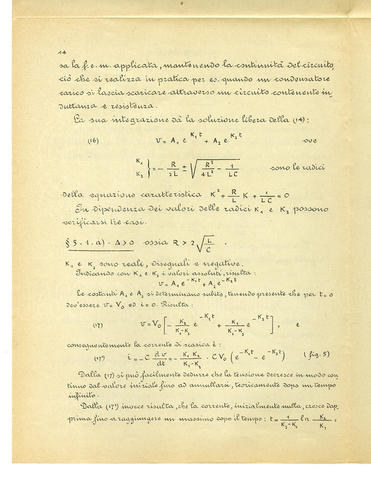 14
sa la f.e.m. applicata, mantenendo la continuità del circuito,
ciò che si realizza in pratica per es. quando un condensatore
carico si lascia scaricare attraverso un circuito contenente in-
duttanza e resistenza.
La sua integrazione dà la soluzione libera della (14):
(16) v = A₁ e^{K₁t} + A₂ e^{K₂t} ove
K₁ K₂ } = - R/2L ± √(R²/4L² - 1/LC) sono le radici
della equazione caratteristica K² + R/L K + 1/LC = 0
In dipendenza dei valori delle radici K₁ e K₂ possono
verificarsi tre casi.
§ 5.1.a) - Δ>0 ossia R > 2√(L/C).
K₁ e K₂ sono reali, diseguali e negative.
Indicando con K₁ e K₂ i valori assoluti, risulta:
v = A₁ e^{-K₁t} + A₂ e^{-K₂t}
Le costanti A₁ e A₂ si determinano subito, tenendo presente che per t = 0
dev'essere v = V₀ ed i = 0. Risulta:
(17) v = V₀ [ - K₂/(K₁-K₂) e^{-K₁t} + K₁/(K₁-K₂) e^{-K₂t} ], e
conseguentemente la corrente di scarica è:
(17') i = -C dv/dt = - K₁K₂/(K₁-K₂) · CV₀ (e^{-K₁t} - e^{-K₂t}) (fig. 5)
Dalla (17) si può facilmente dedurre che la tensione decresce in modo con-
tinuo dal valore iniziale fino ad annullarsi, teoricamente dopo un tempo
infinito.
Dalla (17') invece risulta, che la corrente, inizialmente nulla, cresce dap-
prima fino a raggiungere un massimo dopo il tempo: t = 1/(K₂-K₁) ln K₂/K₁,